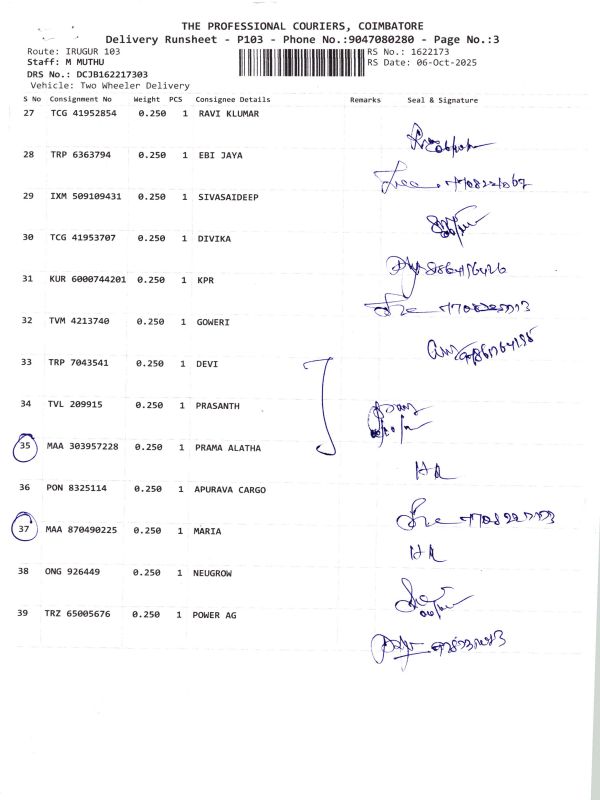 THE PROFESSIONAL COURIERS, COIMBATORE
Delivery Runsheet - P103 - Phone No.:9047080280 - Page No.:3
Route: IRUGUR 103
RS No.: 1622173
Staff: M MUTHU
RS Date: 06-Oct-2025
DRS No.: DCJB162217303
Vehicle: Two Wheeler Delivery
S No Consignment No Weight PCS Consignee Details Remarks Seal & Signature
27 TCG 41952854 0.250 1 RAVI KLUMAR
28 TRP 6363794 0.250 1 EBI JAYA
29 IXM 509109431 0.250 1 SIVASAIDEEP
30 TCG 41953707 0.250 1 DIVIKA
31 KUR 6000744201 0.250 1 KPR
32 TVM 4213740 0.250 1 GOWERI
33 TRP 7043541 0.250 1 DEVI
34 TVL 209915 0.250 1 PRASANTH
35 MAA 303957228 0.250 1 PRAMA ALATHA
36 PON 8325114 0.250 1 APURAVA CARGO
37 MAA 870490225 0.250 1 MARIA
38 ONG 926449 0.250 1 NEUGROW
39 TRZ 65005676 0.250 1 POWER AG